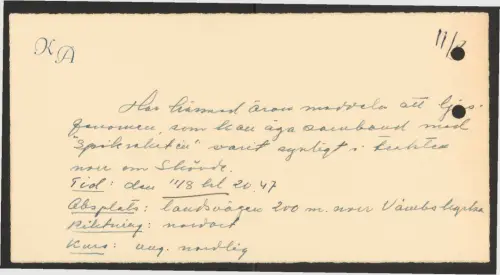 K A
11/8
Har härmed äran meddela att ljus-
fenomen, som kan äga samband med
"Spökraketen" varit synligt i trakten
norr om Skövde.
Tid: den 11/8 kl 20.47
Obsplats: landsvägen 200 m. norr Våmbs kyrka
Riktning: nordost
Kurs: ung. nordlig